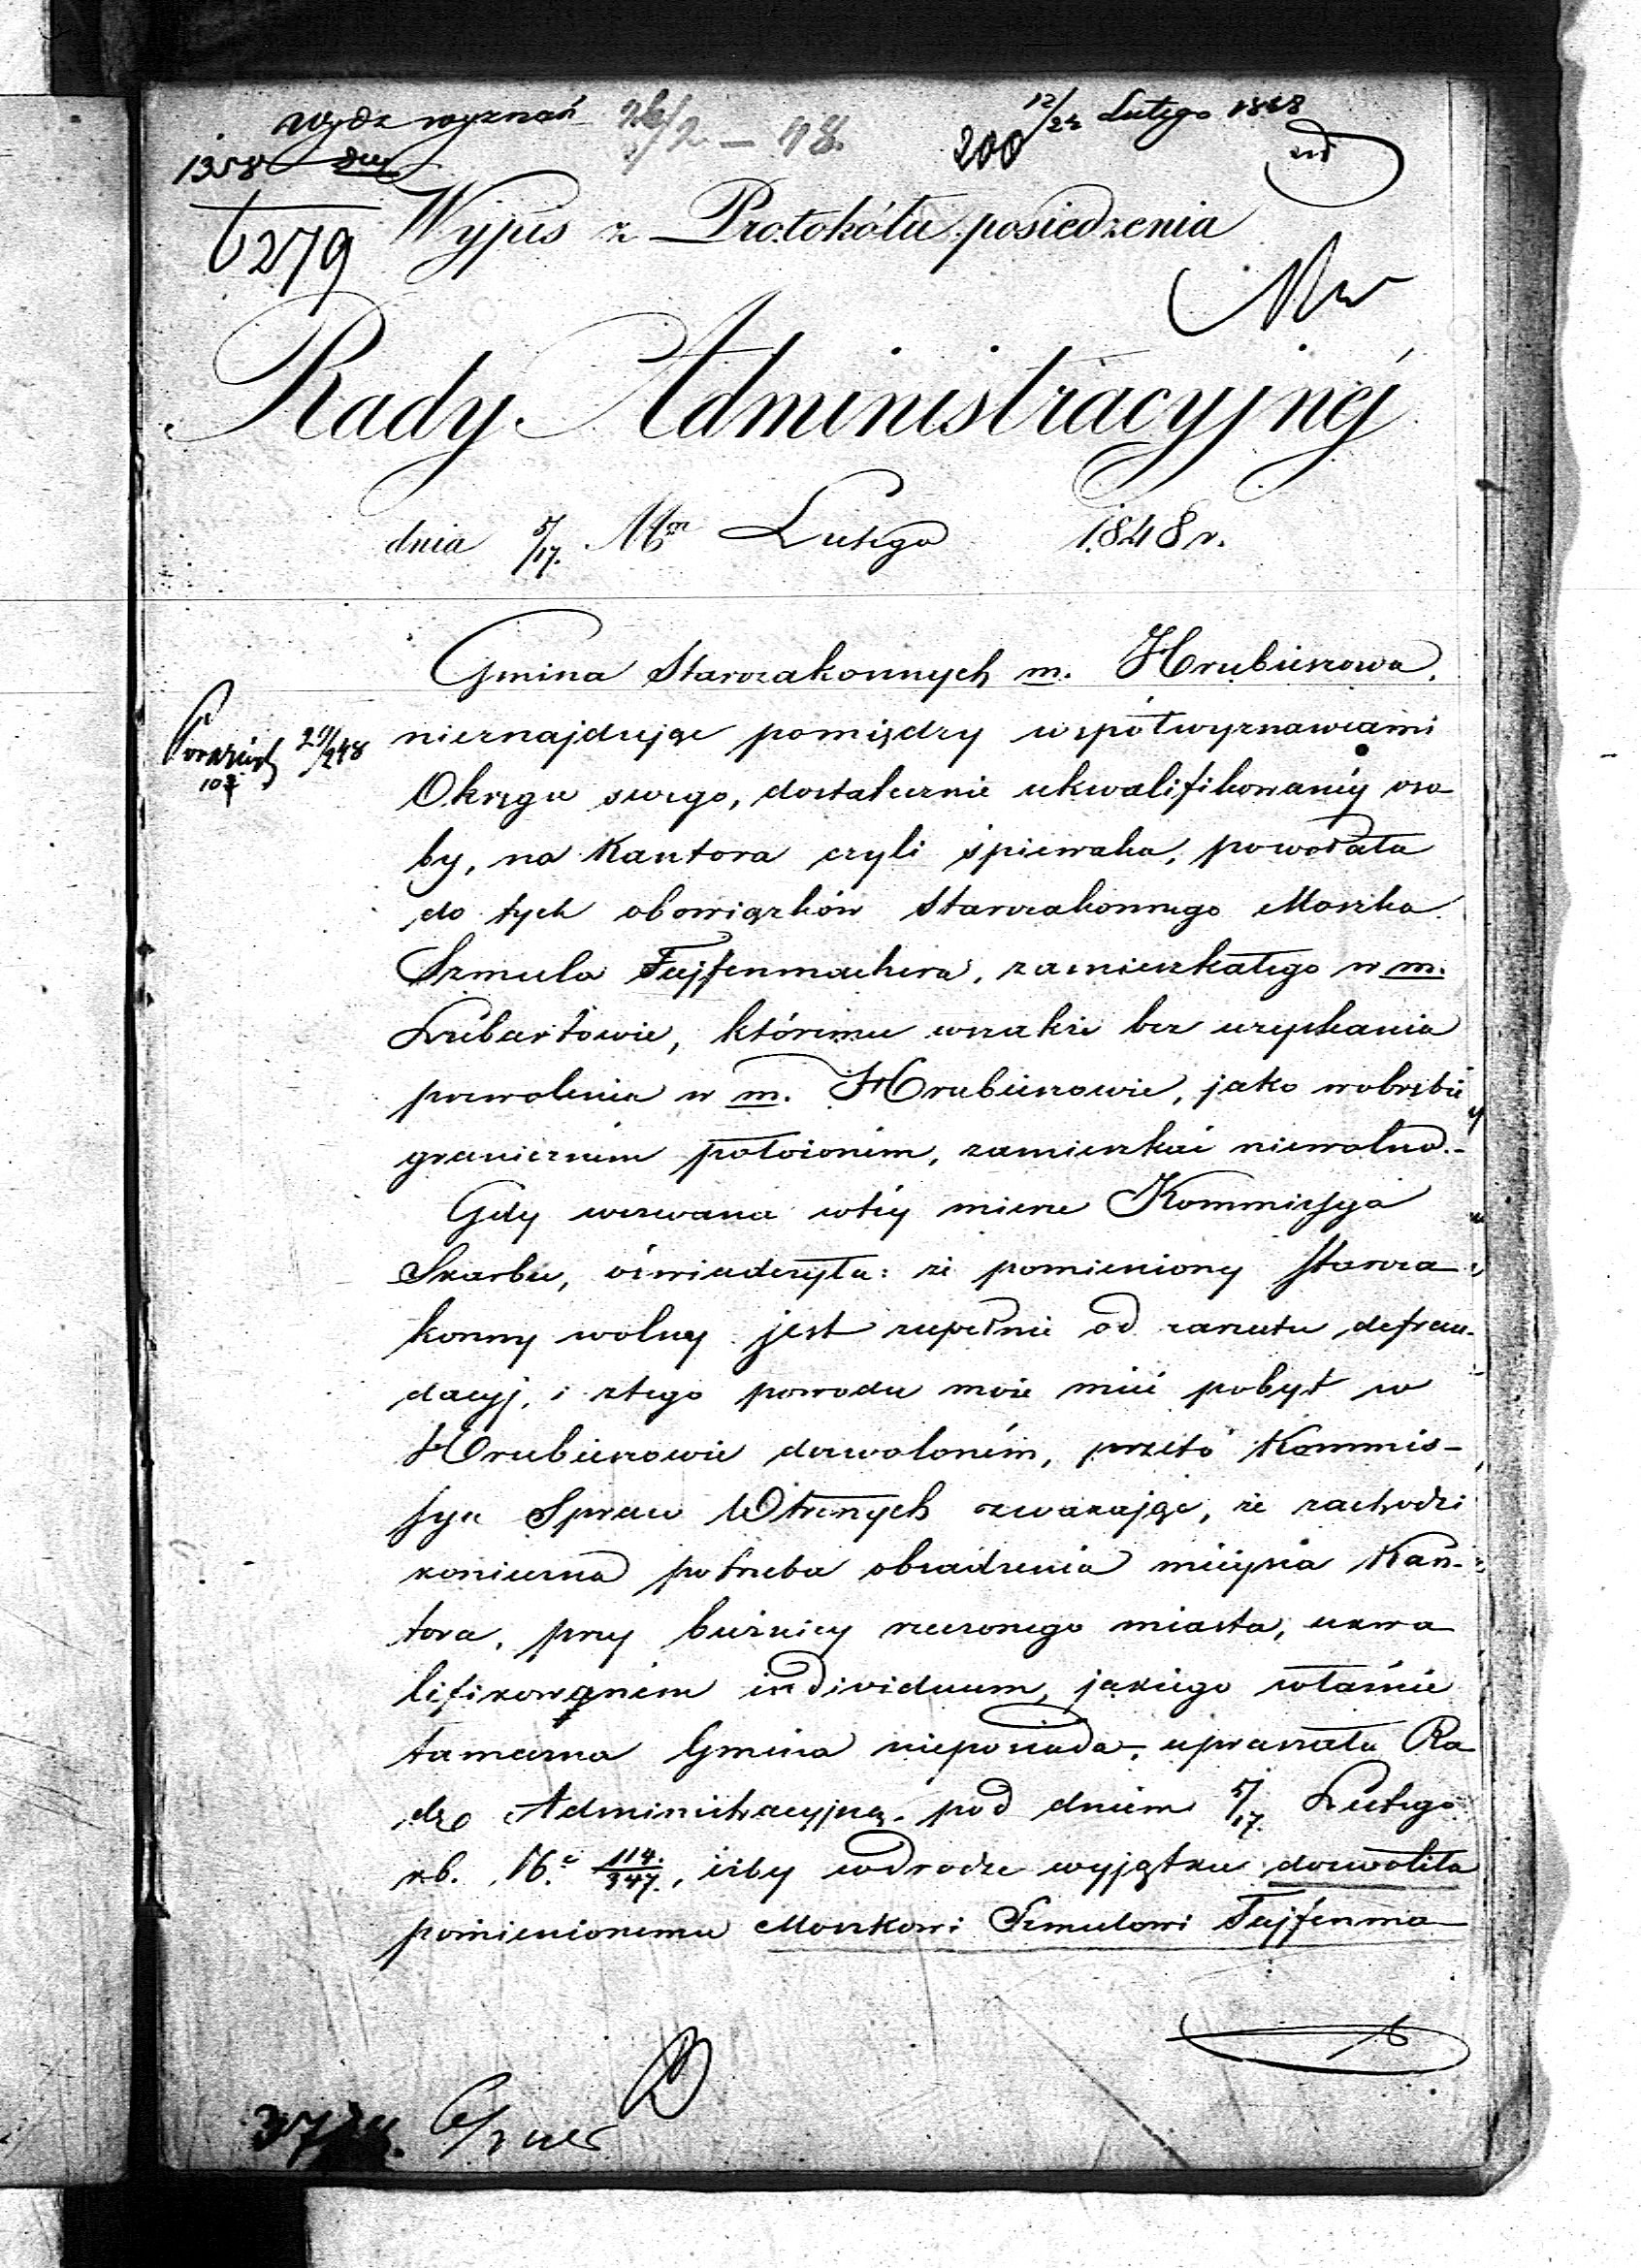 Wydz wyznań 26/2 – 48.
12/24 Lutego 1848
200
1358
6279
Wypis z Protokółu posiedzenia
Rady Administracyjnéj
dnia 5/17. Mca Lutego 1848 r.
Gmina Starozakonnych m. Hrubieszowa,
nieznajdując pomiędzy współwyznawcami
Okręgu swego, dostatecznie ukwalifikowanéj oso
by, na Kantora czyli śpiewaka, powołała
do tych obowiązków Starozakonnego Moszka
Szmula Fajfenmachera, zamieszkałego w m.
Lubartowie, któremu wszakże bez uzyskania
pozwolenia w m. Hrubieszowie, jako w obrębie
granicznem położoném, zamieszkać niewolno.–
Gdy wezwana w téj mierze Kommissya
Skarbu, oświadczyła: że pomieniony Staroza
konny wolny jest zupełnie od zarzutu defrau-
dacyj, i z tego powodu może mieć pobyt w
Hrubieszowie dozwoloném, przeto Kommis-
sya Spraw Wtrznych zważając, że zachodzi
konieczna potrzeba obsadzenia miéjsca Kan-
tora, przy bużnicy rzeczonego miasta, ukwa
lifikowaném individuum, jakiego właśnie
tameczna Gmina nieposiada, upraszała Ra
dę Administracyjną pod dniem 5/17. Lutego
r. b. No 114./347., iżby w drodze wyjątku dozwoliła
pomienionemu Moszkowi Szmulowi Fajfenma